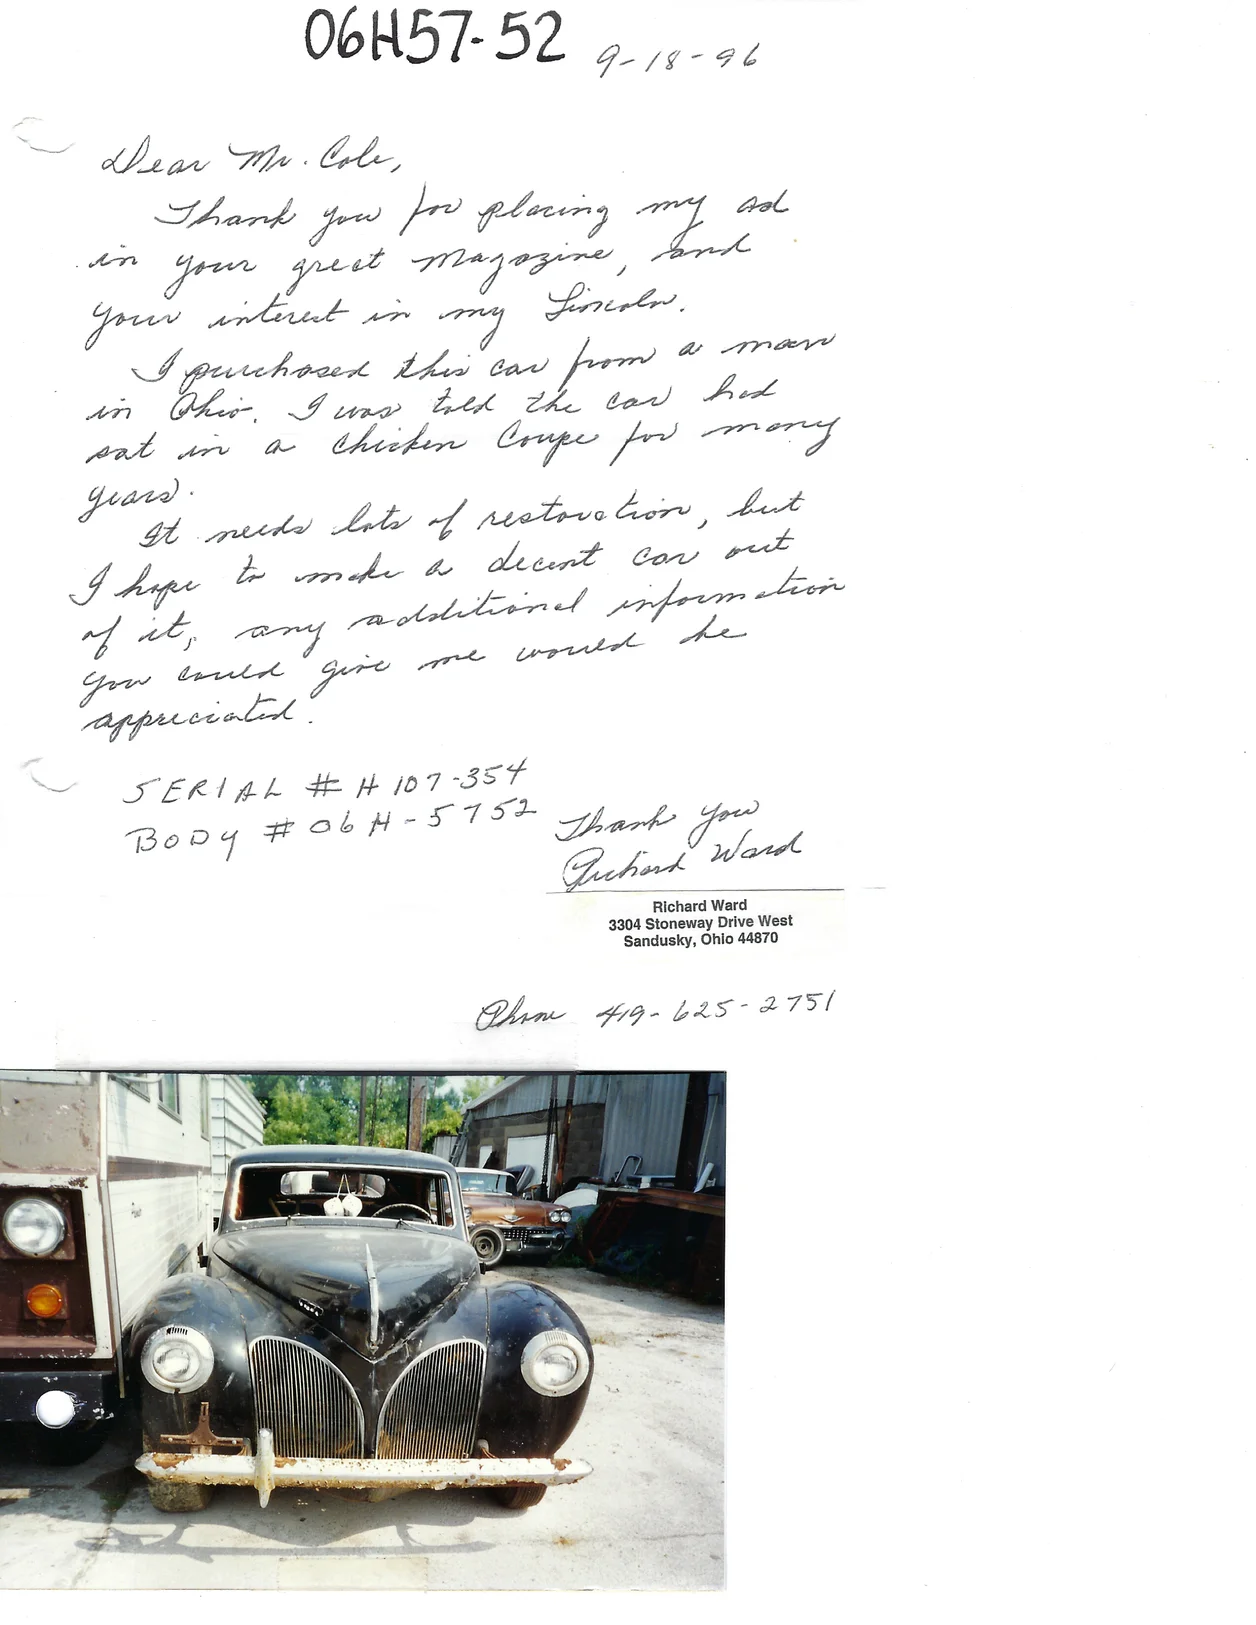 06H57-52
9-18-96
Dear Mr. Cole,
Thank you for placing my ad
in your great Magazine, and
your interest in my Lincoln.
I purchased this car from a man
in Ohio. I was told the car had
sat in a Chicken Coupe for many
years.
It needs lots of restoration, but
I hope to make a decent car out
of it, any additional information
you could give me would be
appreciated.
SERIAL # H 107-354
BODY # 06 H-5752
Thank You
Richard Ward
Richard Ward
3304 Stoneway Drive West
Sandusky, Ohio 44870
Phone 419-625-2751